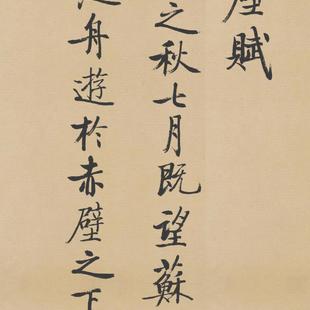 賦
之秋七月既望蘇
舟遊於赤壁之下